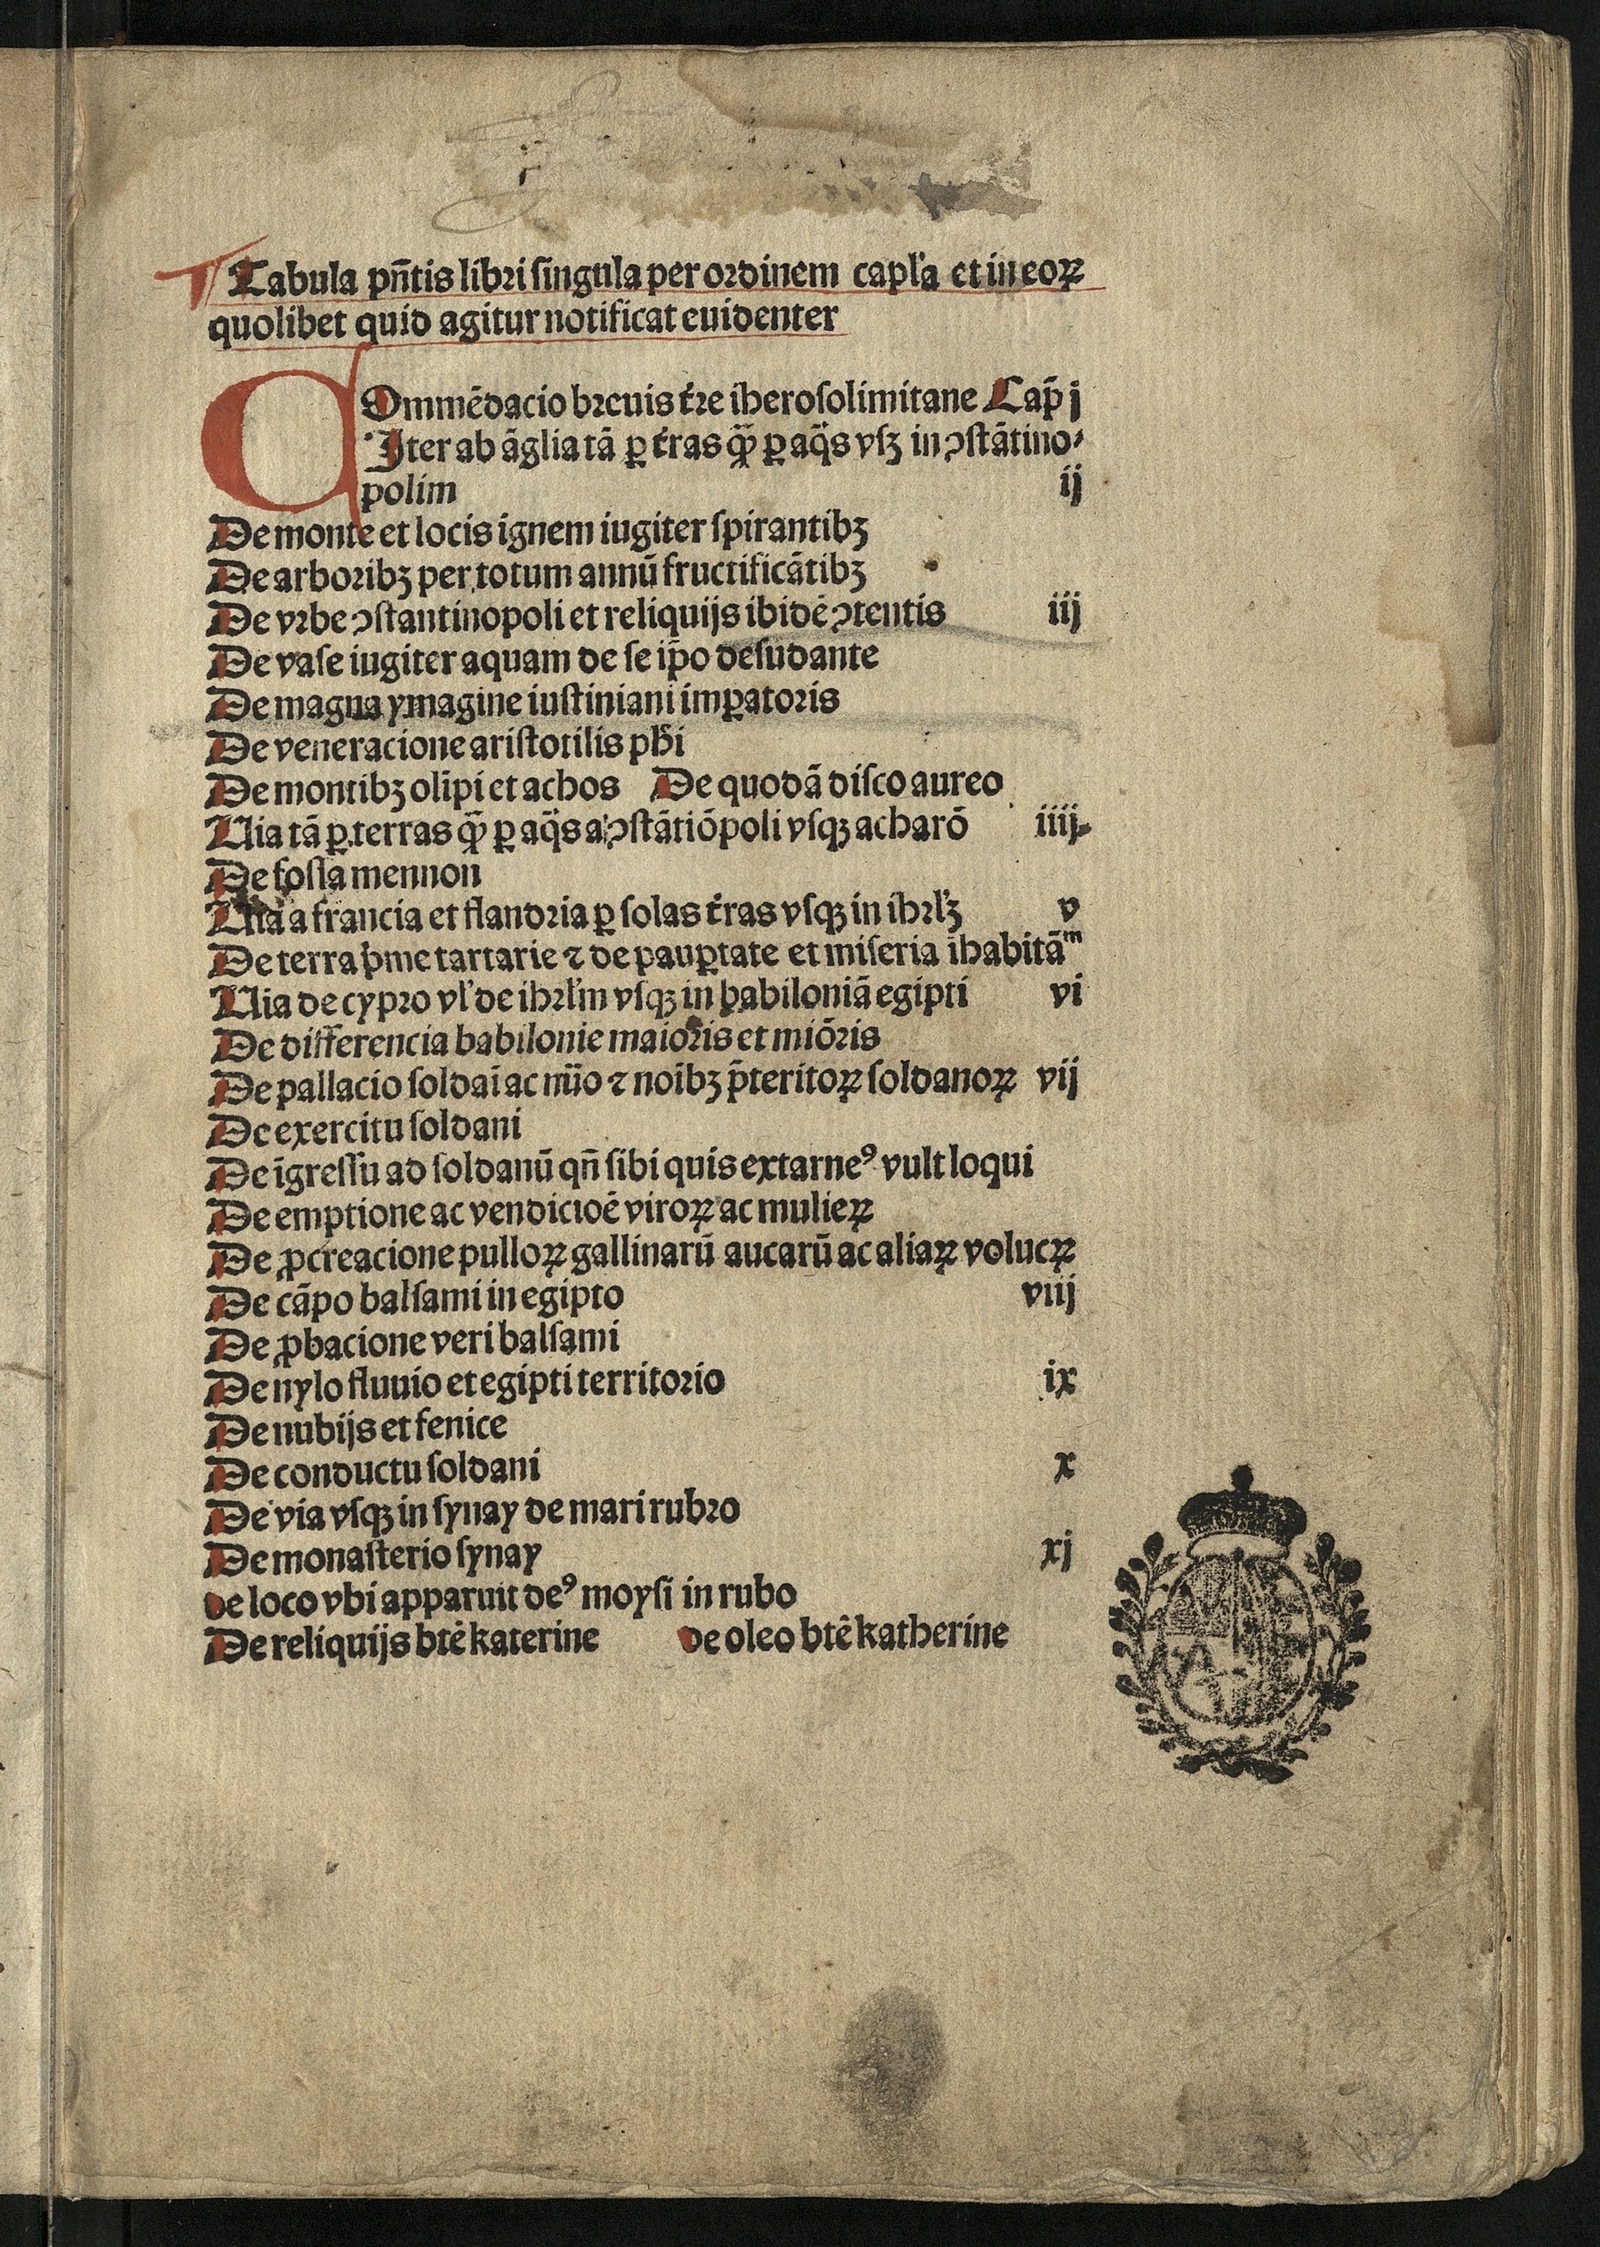 Tabula pn̄tis libri singula per ordinem capl'a et in eoꝝ
quolibet quid agitur notificat euidenter
COmmēdacio breuis t're iherosolimitane Cap̄ j
Iter ab āglia tā ꝑ t'ras qᷓꝫ ꝑ aq̄s vsꝫ in ꝯstātino⸗
polim ij
De monte et locis ignem iugiter spirantibꝫ
De arboribꝫ per totum annū fructificātibꝫ
De vrbe ꝯstantinopoli et reliquijs ibidē ꝯtentis iij
De vase iugiter aquam de se ip̄o desudante
De magna ymagine iustiniani imꝑatoris
De veneracione aristotilis ph̄i
De montibꝫ olīpi et athos De quodā disco aureo
Uia tā ꝑ terras qᷓꝫ ꝑ aq̄s a ꝯstātiōpoli vsqꝫ acharō iiij
De fossa mennon
Uia a francia et flandria ꝑ solas t'ras vsqꝫ in ihrl'ꝫ v
De terra p̄me tartarie ⁊ de pauꝑtate et miseria īhabitāᵐ
Uia de cypro vl' de ihrl'm vsqꝫ in babiloniā egipti vi
De differencia babilonie maioris et miōris
De pallacio soldaī ac nūo ⁊ noībꝫ p̄teritoꝝ soldanoꝝ vij
De exercitu soldani
De īgressu ad soldanū qn̄ sibi quis extarneꝰ vult loqui
De emptione ac vendicioē viroꝝ ac mulieꝝ
De ꝓcreacione pulloꝝ gallinarū aucarū ac aliaꝝ volucꝝ
De cāpo balsami in egipto viij
De ꝓbacione veri balsami
De nylo fluuio et egipti territorio ix
De nubijs et fenice
De conductu soldani x
De via vsqꝫ in synay de mari rubro
De monasterio synay xj
De loco vbi apparuit deꝰ moysi in rubo
De reliquijs btē katerine De oleo btē katherine